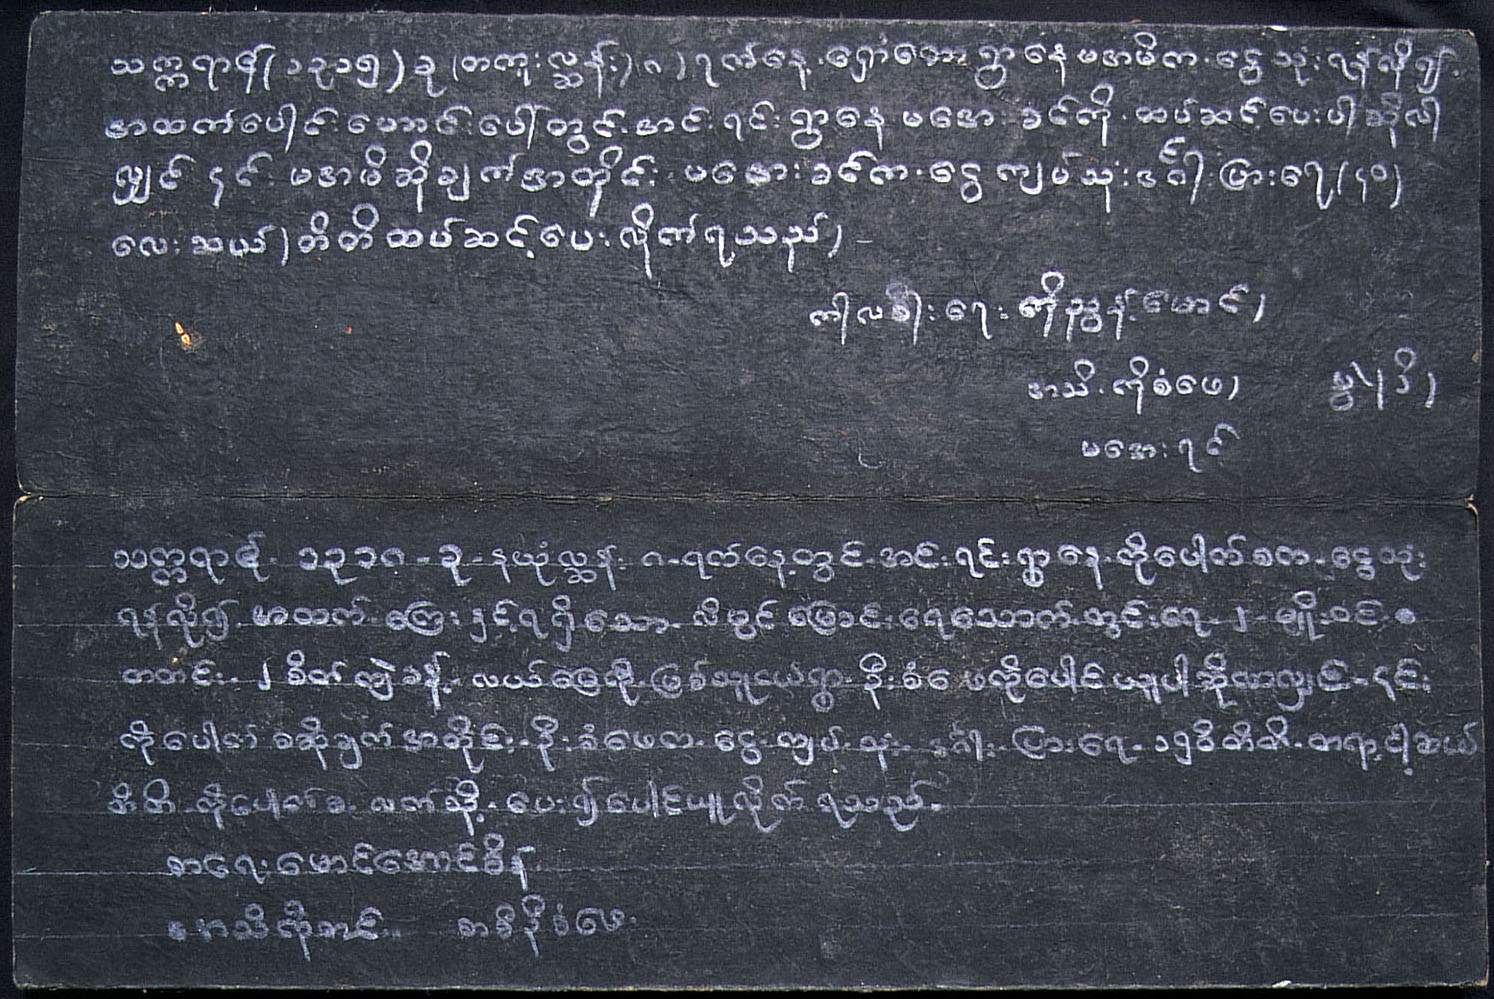 သက္ကရာဇ်(၁၃၁၅)ခု(တကူးလ္ဆန်း)၈)ရက်နေ့.ရှောံတော ရွာနေ မအမိက.ငွေသုံးရန်လို၍.
အထက်ပေါင်းမောင်းပေါ်တွင်.အင်းရင်းရွာနေ မအေးခင်ကို.ထပ်ဆင့်ပေးပါဆိုလါ
လျှင်၎င်း မအမိဆိုချက်အတိုင်း.မအေးခင်က.ငွေကျပ်သုံးဒင်္ဂါးပြားရေ့(၄၀)
လေးဆယ်)တိတိထပ်ဆင့်ပေးလိုက်ရသည်)
ကိုညွန့်မောင်)
အသိ.ကိုစံဖေ)
မအေးရင်
သက္ကရာဇ်.၁၃၁၈-ခု-နယုံလ္ဆန်း ၈-ရက်နေ့တွင်.အင်းရင်းရွာနေ.ကိုပေါက်စက.ငွေသုံး
ရန်လို၍.အထက်.ကြေးနှင့်ရရှိသော. မြောင်းရေသောက်.တွင်းရေ.၂.မျိုးဝင်.
တတင်း.၂စိတ်ကျဲခန့်.လယ်မြေကို.ဖြစ်သူငယ်ရွာ.ဦးစံဖေကိုပေါင်ယူပါဆိုလာလျှင်-၎င်း
ကိုပေါက်စဆိုချက်အတိုင်း.ဦးစံဖေက.ငွေ.ကျပ်.သုံး.ဒင်္ဂါး.ပြားရေ.၁၅၀ိတိတိ.တရာ့ငါးဆယ်
တိတိ.ကိုပေါက်စ.လက်သို့.ပေး၍ပေါင်ယူလိုက်ရသည်.
စာရေးမောင်အောင်စိန်
အသိကိုဘင်. စာခိုဦစံဖေ.